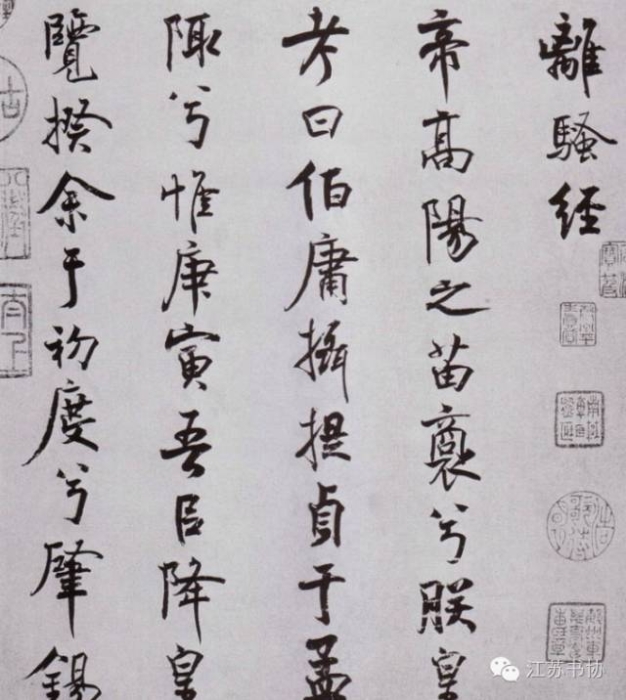 離騷經
帝高陽之苗裔兮朕皇
考曰伯庸攝提貞于孟
陬兮惟庚寅吾㠯降皇
覽揆余于初度兮肇錫
江苏书协